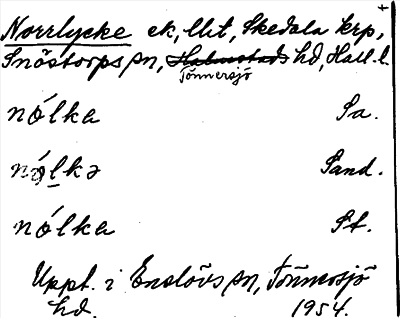 Norrlycke ek, llt, Skedala krp, +
Snöstorps sn, Halmstads hd, Hall. l.
Tönnersjö
nólka Sa.
nǫ́lkə Sand.
nólka St.
Uppt. i Enslövs sn, Tönnersjö
hd. 1954.